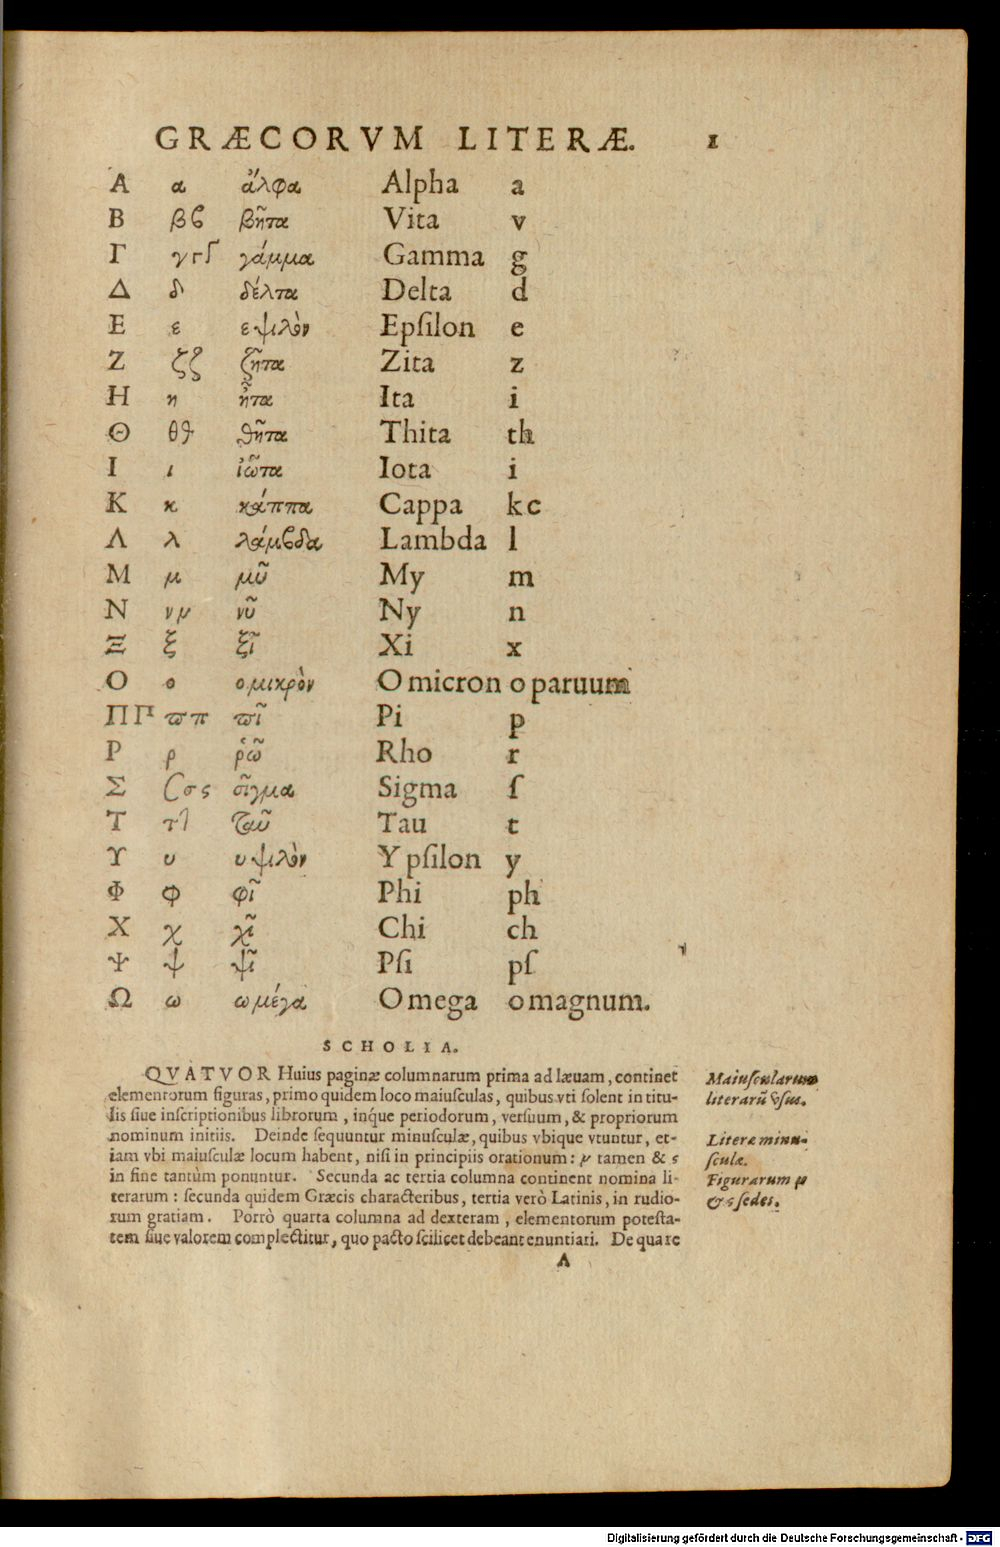 GRÆCORVM LITERÆ. 1
Α α ἄλφα Alpha a
Β βϐ βῆτα Vita v
Γ γΓ γάμμα Gamma g
Δ δ δέλτα Delta d
Ε ε εψιλὸν Epſilon e
Ζ ζζ ζῆτα Zita z
Η η ἦτα Ita i
Θ θϑ ϑῆτα Thita th
Ι ι ἰῶτα Iota i
Κ κ κάππα Cappa kc
Λ λ λάμϐδα Lambda l
Μ μ μῦ My m
Ν νν νῦ Ny n
Ξ ξ ξῖ Xi x
Ο ο ομικρὸν O micron o paruum
ΠΠ ϖπ ϖῖ Pi p
Ρ ρ ῥῶ Rho r
Σ Cσς σῖγμα Sigma ſ
Τ τ7 Ταῦ Tau t
Υ υ υψιλὸν Y pſilon y
Φ φ φῖ Phi ph
Χ χ χῖ Chi ch
Ψ ψ ψῖ Pſi pſ
Ω ω ωμέγα O mega o magnum.
SCHOLIA.
QVATVOR Huius paginæ columnarum prima ad læuam, continet
elementorum figuras, primo quidem loco maiuſculas, quibus vti ſolent in titu-
lis ſiue inſcriptionibus librorum, inq́ue periodorum, verſuum, & propriorum
nominum initiis. Deinde ſequuntur minuſculæ, quibus vbique vtuntur, et-
iam vbi maiuſculæ locum habent, niſi in principiis orationum: ν tamen & ς
in fine tantùm ponuntur. Secunda ac tertia columna continent nomina li-
terarum: ſecunda quidem Græcis characteribus, tertia verò Latinis, in rudio-
rum gratiam. Porrò quarta columna ad dexteram, elementorum poteſta-
tem ſiue valorem complectitur, quo pacto ſcilicet debeant enuntiari. De qua re
A
Maiuſcularum
literarū vſus.
Literæ minu-
ſculæ.
Figurarum ν
& ς ſedes.
Digitalisierung gefördert durch die Deutsche Forschungsgemeinschaft - DFG